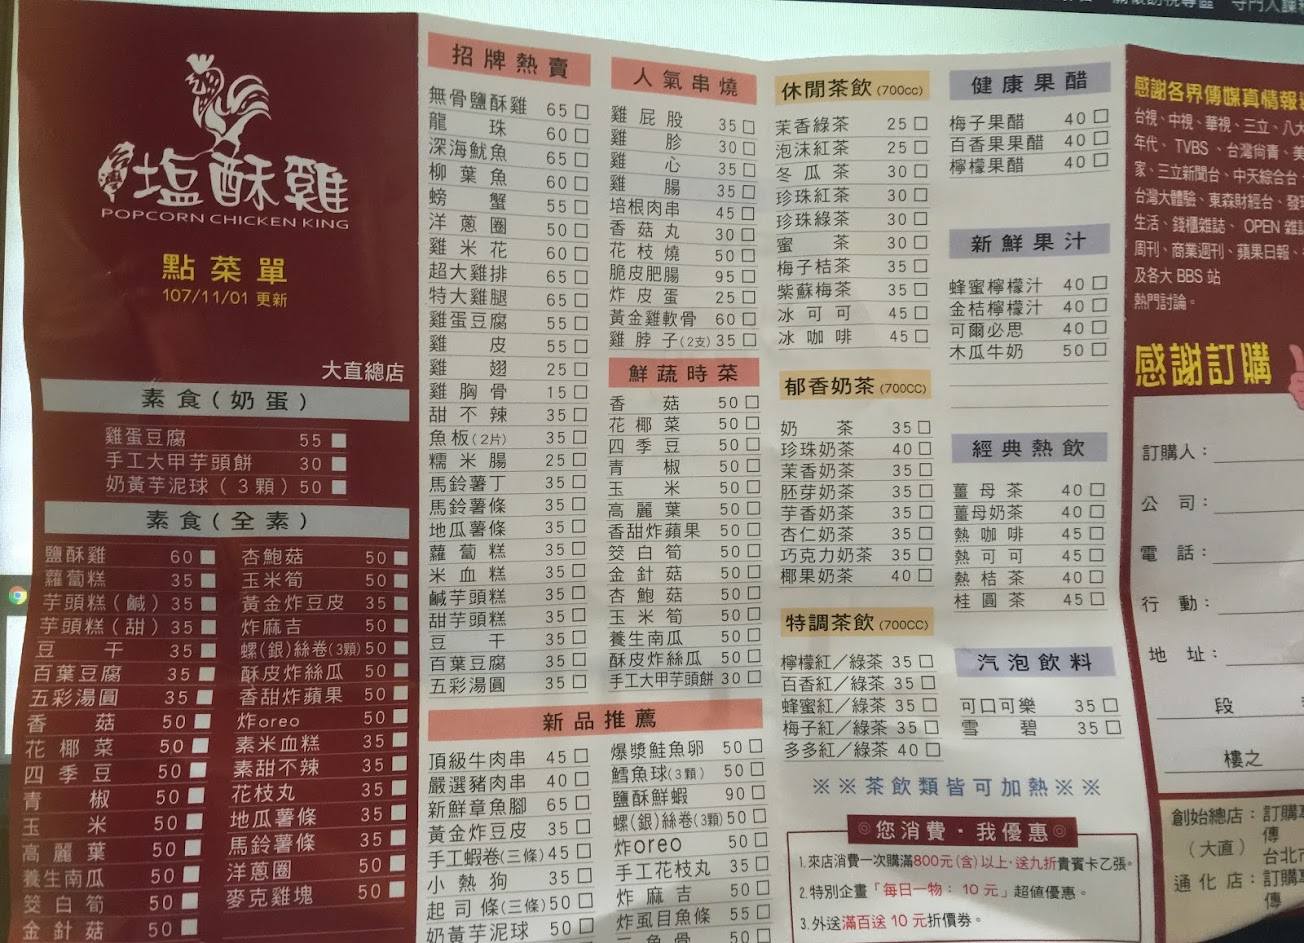 台灣塩酥雞
POPCORN CHICKEN KING
點菜單
107/11/01 更新
大直總店
素食(奶蛋)
雞蛋豆腐 55
手工大甲芋頭餅 30
奶黃芋泥球(3顆) 50
素食(全素)
鹽酥雞 60
蘿蔔糕 35
芋頭糕(鹹) 35
芋頭糕(甜) 35
豆干 35
百葉豆腐 35
五彩湯圓 35
香菇 50
花椰菜 50
四季豆 50
青椒 50
玉米 50
高麗葉 50
養生南瓜 50
筊白筍 50
金針菇 50
杏鮑菇 50
玉米筍 50
黃金炸豆皮 35
炸麻吉 50
螺(銀)絲卷(3顆) 50
酥皮炸絲瓜 50
香甜炸蘋果 50
炸oreo 50
素米血糕 35
素甜不辣 35
花枝丸 35
地瓜薯條 35
馬鈴薯條 35
洋蔥圈 50
麥克雞塊 50
招牌熱賣
無骨鹽酥雞 65
龍珠 60
深海魷魚 65
柳葉魚 60
螃蟹 55
洋蔥圈 50
雞米花 60
超大雞排 65
特大雞腿 65
雞蛋豆腐 55
雞皮 55
雞翅 25
雞胸骨 15
甜不辣 35
魚板(2片) 35
糯米腸 25
馬鈴薯丁 35
馬鈴薯條 35
地瓜薯條 35
蘿蔔糕 35
米血糕 35
鹹芋頭糕 35
甜芋頭糕 35
豆干 35
百葉豆腐 35
五彩湯圓 35
人氣串燒
雞屁股 35
雞胗 30
雞心 35
雞腸 35
培根肉串 45
香菇丸 30
花枝燒 50
脆皮肥腸 95
炸皮蛋 25
黃金雞軟骨 60
雞脖子(2支) 35
鮮蔬時菜
香菇 50
花椰菜 50
四季豆 50
青椒 50
玉米 50
高麗葉 50
香甜炸蘋果 50
筊白筍 50
金針菇 50
杏鮑菇 50
玉米筍 50
養生南瓜 50
酥皮炸絲瓜 50
手工大甲芋頭餅 30
新品推薦
頂級牛肉串 45
嚴選豬肉串 40
新鮮章魚腳 65
黃金炸豆皮 35
手工蝦卷(三條) 45
小熱狗 35
起司條(三條) 50
奶黃芋泥球 50
爆漿鮭魚卵 50
鱈魚球(3顆) 50
鹽酥鮮蝦 90
螺(銀)絲卷(3顆) 50
炸oreo 50
手工花枝丸 35
炸麻吉 50
炸虱目魚條 55
魚骨 50
休閒茶飲(700cc)
茉香綠茶 25
泡沫紅茶 25
冬瓜茶 30
珍珠紅茶 30
珍珠綠茶 30
蜜茶 30
梅子桔茶 35
紫蘇梅茶 35
冰可可 45
冰咖啡 45
郁香奶茶(700CC)
奶茶 35
珍珠奶茶 40
茉香奶茶 35
胚芽奶茶 35
芋香奶茶 35
杏仁奶茶 35
巧克力奶茶 35
椰果奶茶 40
特調茶飲(700CC)
檸檬紅／綠茶 35
百香紅／綠茶 35
蜂蜜紅／綠茶 35
梅子紅／綠茶 35
多多紅／綠茶 40
健康果醋
梅子果醋 40
百香果果醋 40
檸檬果醋 40
新鮮果汁
蜂蜜檸檬汁 40
金桔檸檬汁 40
可爾必思 40
木瓜牛奶 50
經典熱飲
薑母茶 40
薑母奶茶 40
熱咖啡 45
熱可可 45
熱桔茶 40
桂圓茶 45
汽泡飲料
可口可樂 35
雪碧 35
※※茶飲類皆可加熱※※
◎您消費・我優惠◎
1.來店消費一次購滿800元(含)以上，送九折貴賓卡乙張。
2.特別企畫「每日一物：10元」超值優惠。
3.外送滿百送10元折價券。
感謝各界傳媒真情報
台視、中視、華視、三立、八大
年代、TVBS、台灣尚青、美
家、三立新聞台、中天綜合台
台灣大體驗、東森財經台、發
生活、錢櫃雜誌、OPEN雜
周刊、商業週刊、蘋果日報、
及各大BBS站
熱門討論。
感謝訂購
訂購人：
公司：
電話：
行動：
地址：
段
樓之
創始總店：訂購
(大直) 傳
台北市
通化店：訂購
傳